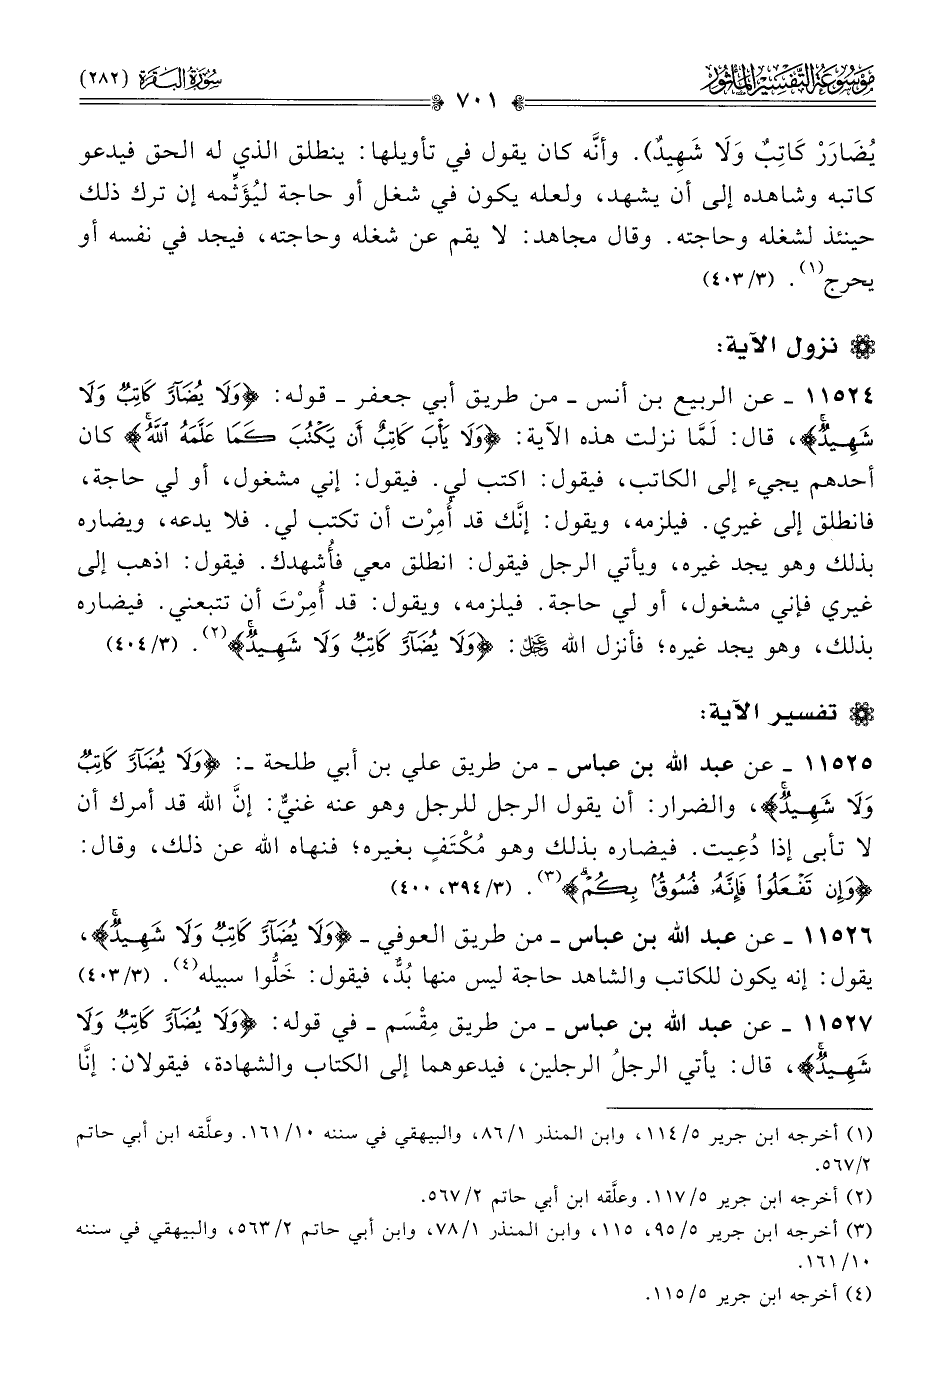 مَوْسُوعَة التَّفْسِير المَأْثُور
سُورَةُ البَقَرَة (٢٨٢)
٧٠١
يُضَارَرْ كَاتِبٌ وَلَا شَهِيدٌ). وأنَّه كان يقول في تأويلها: ينطلق الذي له الحق فيدعو
كاتبه وشاهده إلى أن يشهد، ولعله يكون في شغل أو حاجة ليُؤَثِّمه إن ترك ذلك
حينئذ لشغله وحاجته. وقال مجاهد: لا يقم عن شغله وحاجته، فيجد في نفسه أو
يحرج(١). (٤٠٣/٣)
نزول الآية:
١١٥٢٤ - عن الربيع بن أنس - من طريق أبي جعفر - قوله: ﴿وَلَا يُضَآرَّ كَاتِبٌ وَلَا
شَهِيدٌۚ﴾، قال: لَمَّا نزلت هذه الآية: ﴿وَلَا يَأْبَ كَاتِبٌ أَن يَكْتُبَ كَمَا عَلَّمَهُ ٱللَّهُۚ﴾ كان
أحدهم يجيء إلى الكاتب، فيقول: اكتب لي. فيقول: إني مشغول، أو لي حاجة،
فانطلق إلى غيري. فيلزمه، ويقول: إنَّك قد أُمِرْت أن تكتب لي. فلا يدعه، ويضاره
بذلك وهو يجد غيره، ويأتي الرجل فيقول: انطلق معي فأُشهدك. فيقول: اذهب إلى
غيري فإني مشغول، أو لي حاجة. فيلزمه، ويقول: قد أُمِرْتَ أن تتبعني. فيضاره
بذلك، وهو يجد غيره؛ فأنزل الله ﷿: ﴿وَلَا يُضَآرَّ كَاتِبٌ وَلَا شَهِيدٌۚ﴾(٢). (٤٠٤/٣)
تفسير الآية:
١١٥٢٥ - عن عبد الله بن عباس - من طريق علي بن أبي طلحة -: ﴿وَلَا يُضَآرَّ كَاتِبٌ
وَلَا شَهِيدٌۚ﴾، والضرار: أن يقول الرجل للرجل وهو عنه غنيٌّ: إنَّ الله قد أمرك أن
لا تأبى إذا دُعِيت. فيضاره بذلك وهو مُكْتَفٍ بغيره؛ فنهاه الله عن ذلك، وقال:
﴿وَإِن تَفْعَلُواْ فَإِنَّهُۥ فُسُوقُۢ بِكُمْۗ﴾(٣). (٣٩٤/٣، ٤٠٠)
١١٥٢٦ - عن عبد الله بن عباس - من طريق العوفي - ﴿وَلَا يُضَآرَّ كَاتِبٌ وَلَا شَهِيدٌۚ﴾،
يقول: إنه يكون للكاتب والشاهد حاجة ليس منها بُدٌّ، فيقول: خَلُّوا سبيله(٤). (٤٠٣/٣)
١١٥٢٧ - عن عبد الله بن عباس - من طريق مِقْسَم - في قوله: ﴿وَلَا يُضَآرَّ كَاتِبٌ وَلَا
شَهِيدٌۚ﴾، قال: يأتي الرجلُ الرجلين، فيدعوهما إلى الكتاب والشهادة، فيقولان: إنَّا
(١) أخرجه ابن جرير ١١٤/٥، وابن المنذر ٨٦/١، والبيهقي في سننه ١٦١/١٠. وعلَّقه ابن أبي حاتم
٥٦٧/٢.
(٢) أخرجه ابن جرير ١١٧/٥. وعلَّقه ابن أبي حاتم ٥٦٧/٢.
(٣) أخرجه ابن جرير ٩٥/٥، ١١٥، وابن المنذر ٧٨/١، وابن أبي حاتم ٥٦٣/٢، والبيهقي في سننه
١٦١/١٠.
(٤) أخرجه ابن جرير ١١٥/٥.